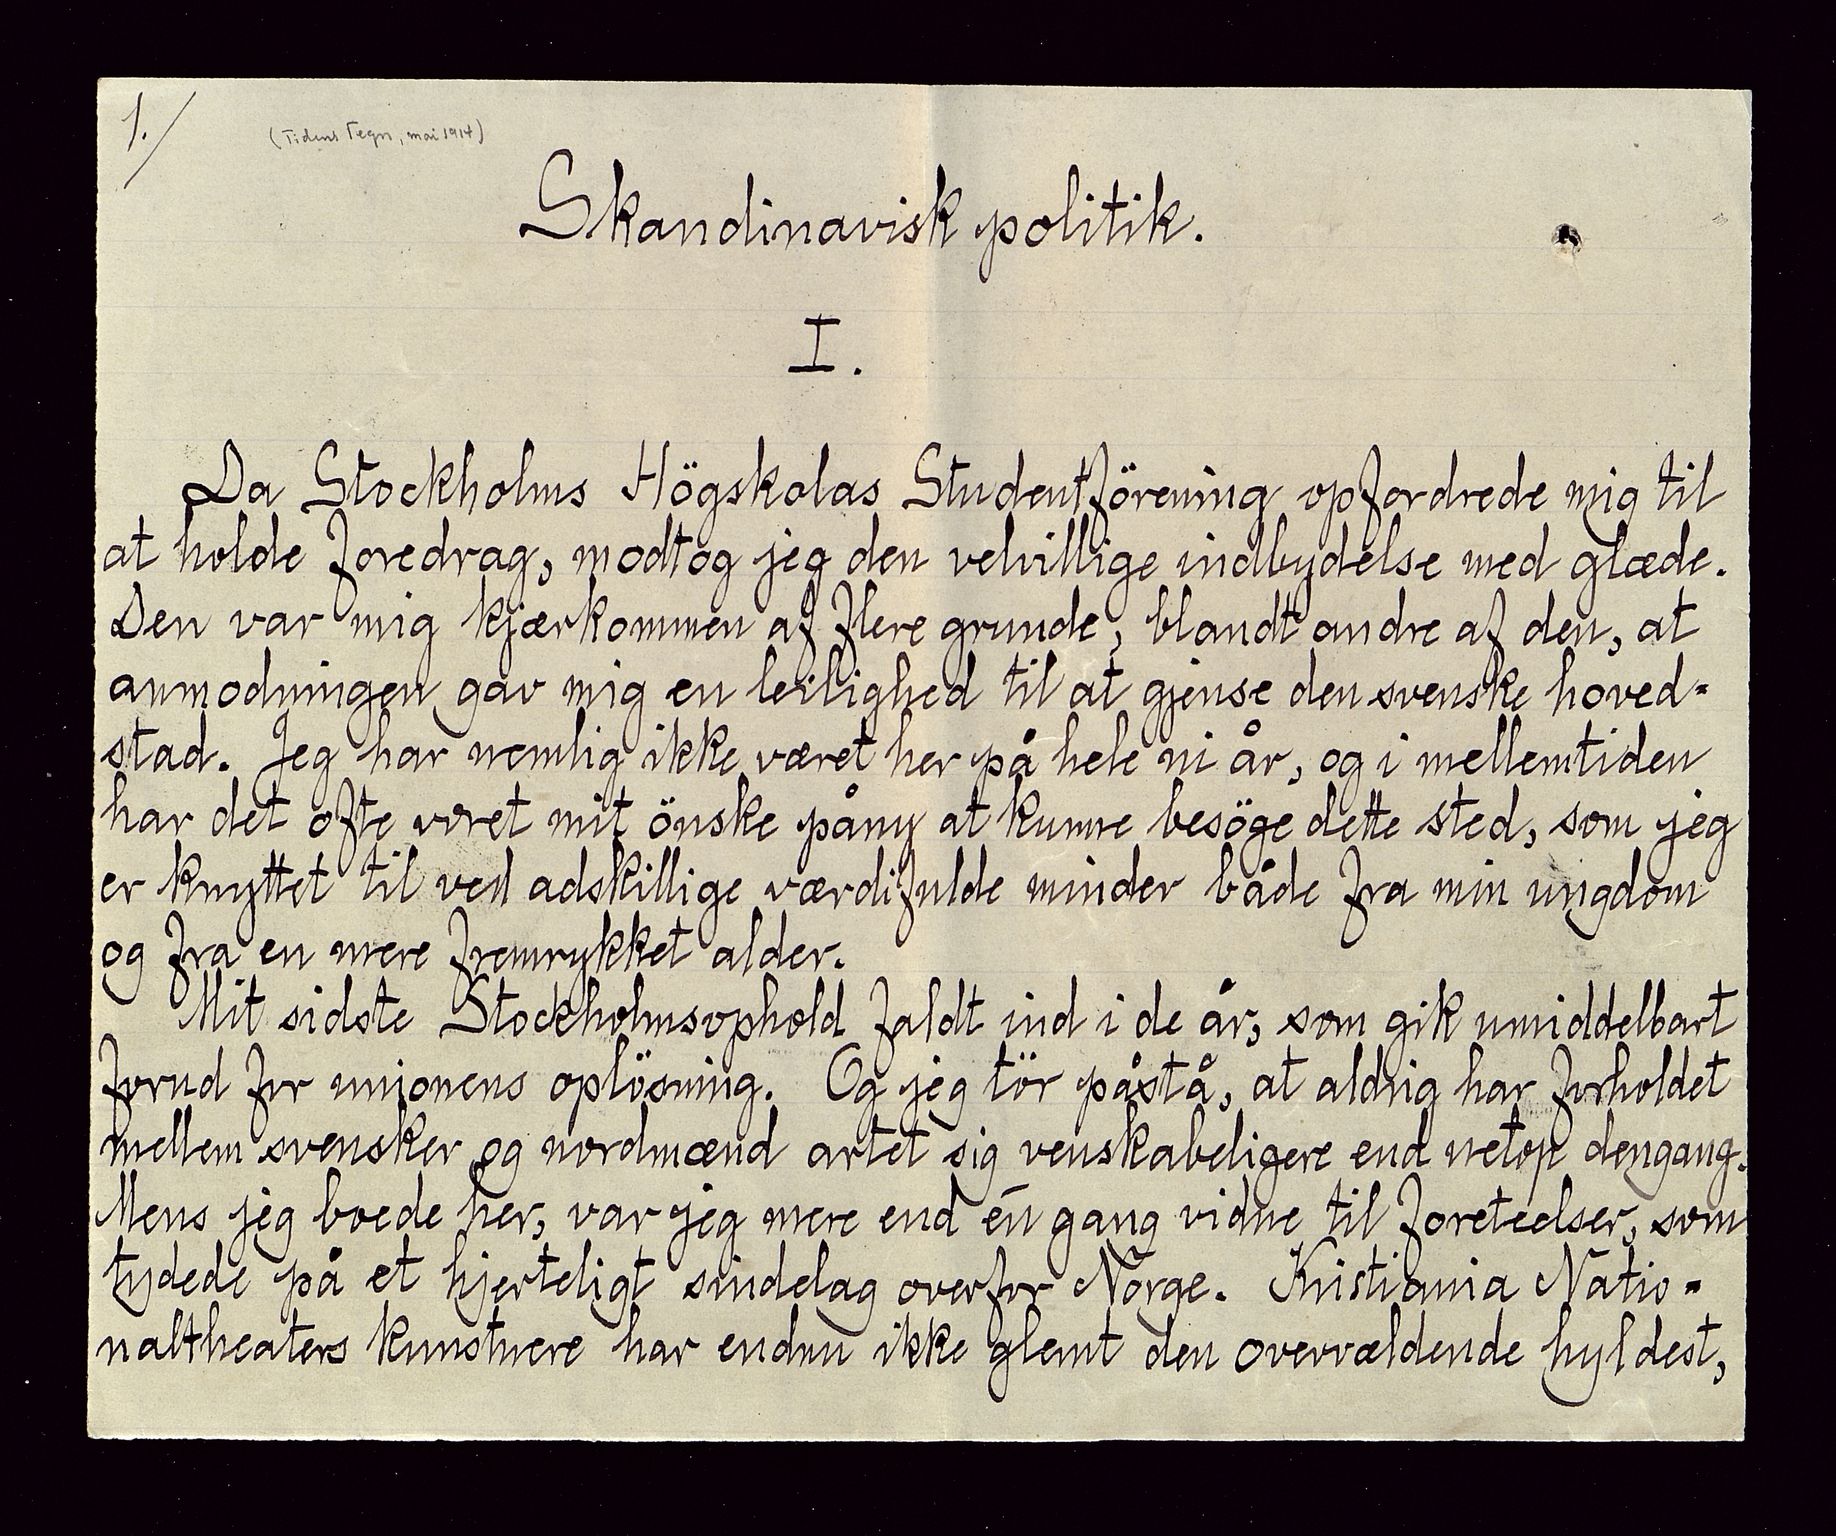 1./
(Tidens Tegn, mai 1914)
Skandinavisk politik.
I.
Da Stockholms Högskolas Studentförening opfordrede mig til
at holde foredrag, modtog jeg den velvillige indbydelse med glæde.
Den var mig kjærkommen af flere grunde, blandt andre af den, at
anmodningen gav mig en leilighed til at gjense den svenske hoved-
stad. Jeg har nemlig ikke været her på hele ni år, og i mellemtiden
har det ofte været mit önske påny at kunne besöge dette sted, som jeg
er knyttet til ved adskillige værdifulde minder både fra min ungdom
og fra en mere fremrykket alder.
Mit sidste Stockholmsophold faldt ind i de år, som gik umiddelbart
forud for unionens oplösning. Og jeg tör påstå, at aldrig har forholdet
mellem svensker og nordmænd artet sig venskabeligere end netop dengang.
Mens jeg boede her, var jeg mere end én gang vidne til foreteelser, som
tydede på et hjerteligt sindelag overfor Norge. Kristiania Natio-
naltheaters kunstnere har endnu ikke glemt den overvældende hyldest,